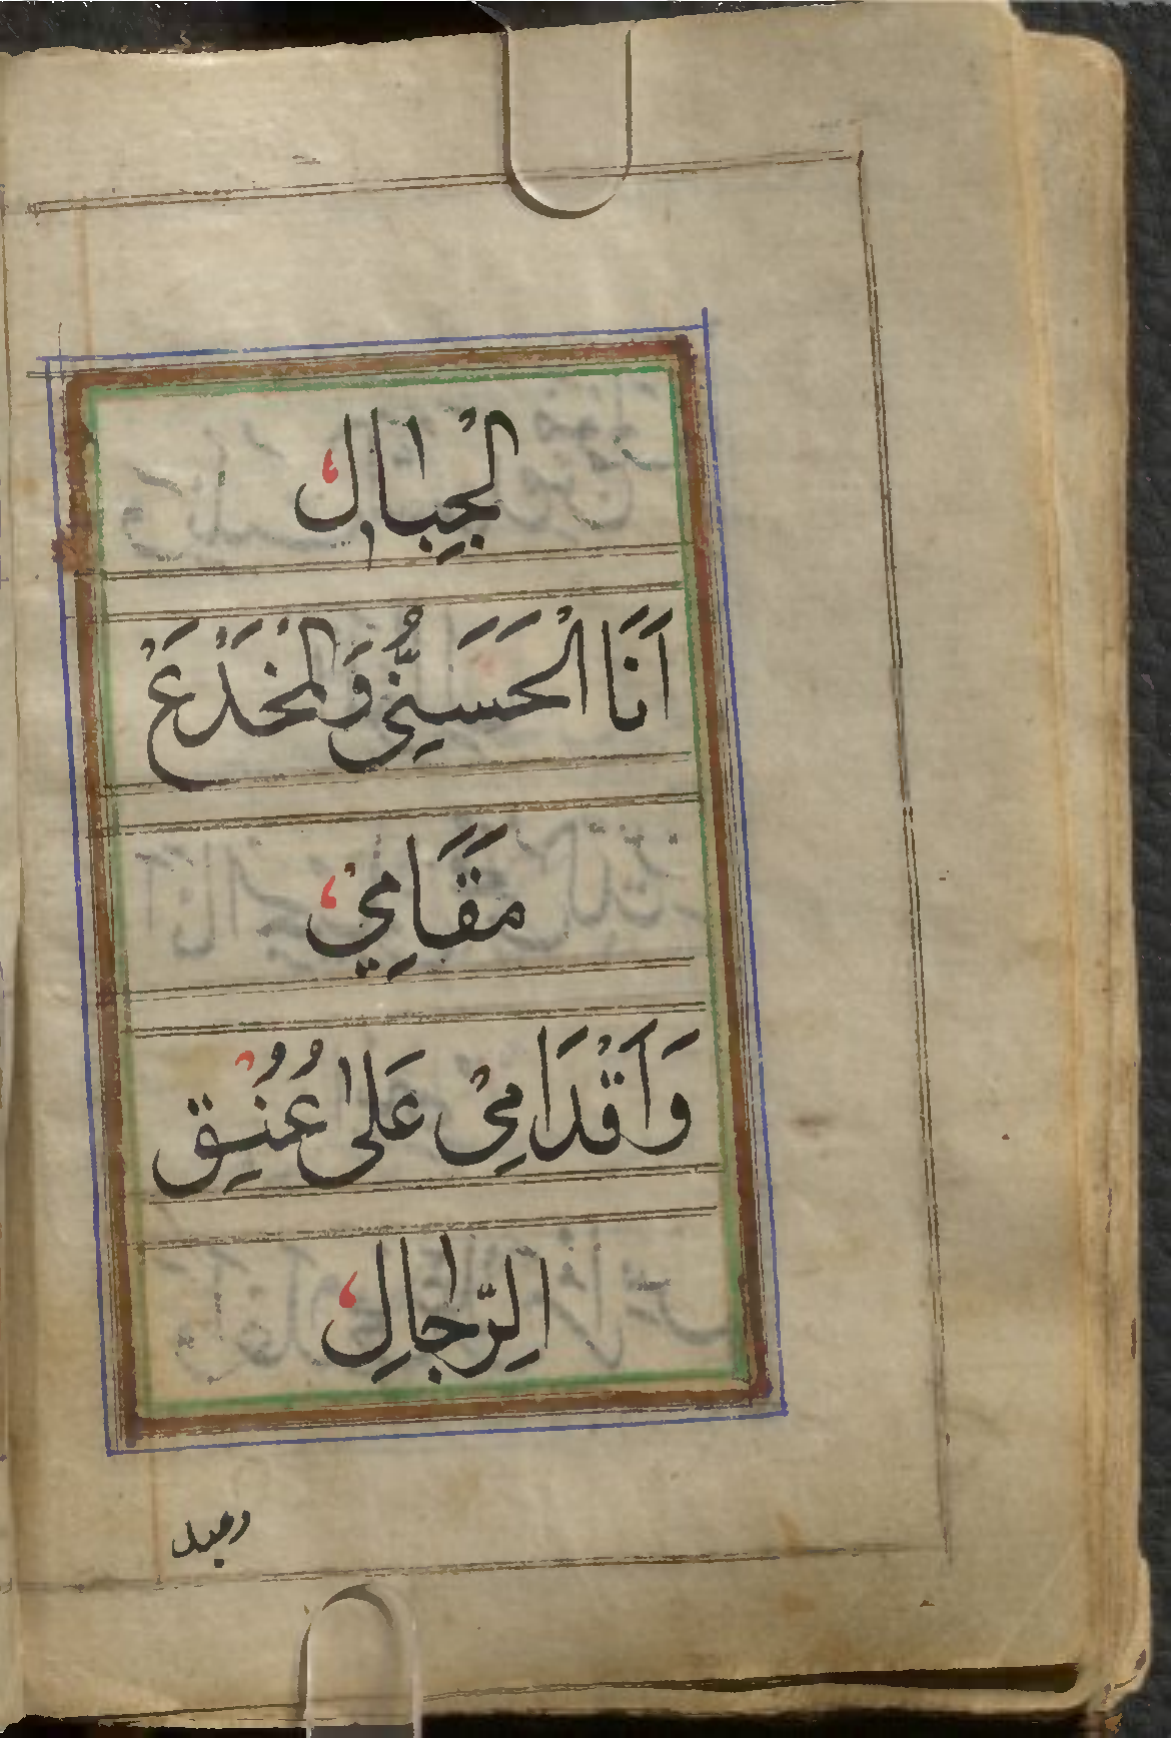 الْجِبَالِ
اَنَا الْحَسَنِيُّ وَالْمَخْدَعْ
مَقَامِيْ
وَاَقْدَامِيْ عَلىٰ عُنُقِ
الرِّجَالِ
وعبد